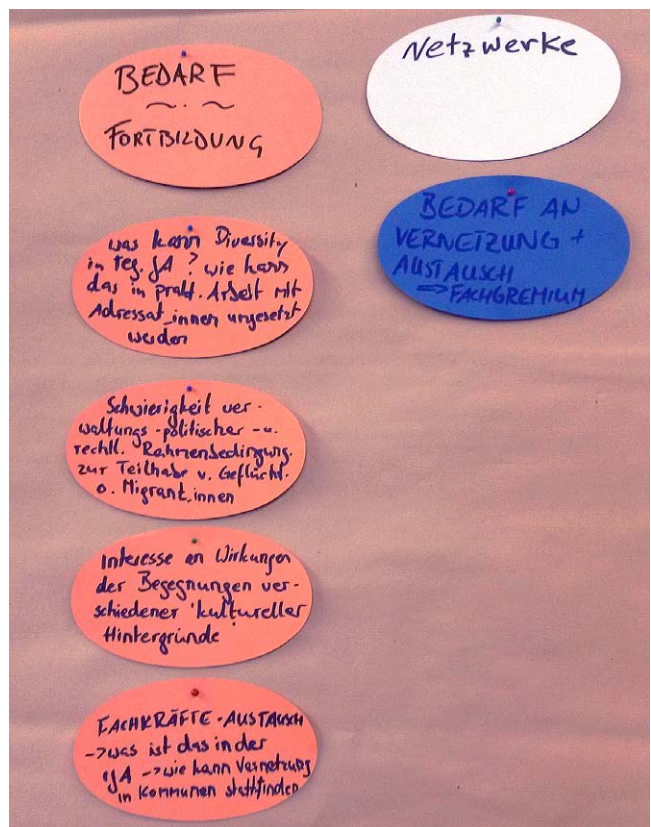 BEDARF
FORTBILDUNG
was kann Diversity
in reg. JA? wie kann
das in prakt. Arbeit mit
Adressat_innen umgesetzt
werden
Schwierigkeit ver-
waltungs-politischer-u.
rechtl. Rahmenbedingung.
zur Teilhabe v. Geflücht.
o. Migrant_innen
Interesse an Wirkungen
der Begegnungen ver-
schiedener 'kultureller
Hintergründe'
FACHKRÄFTE-AUSTAUSCH
->was ist das in der
JA ->wie kann Vernetzung
in Kommunen stattfinden
Netzwerke
BEDARF AN
VERNETZUNG +
AUSTAUSCH
=> FACHGREMIUM